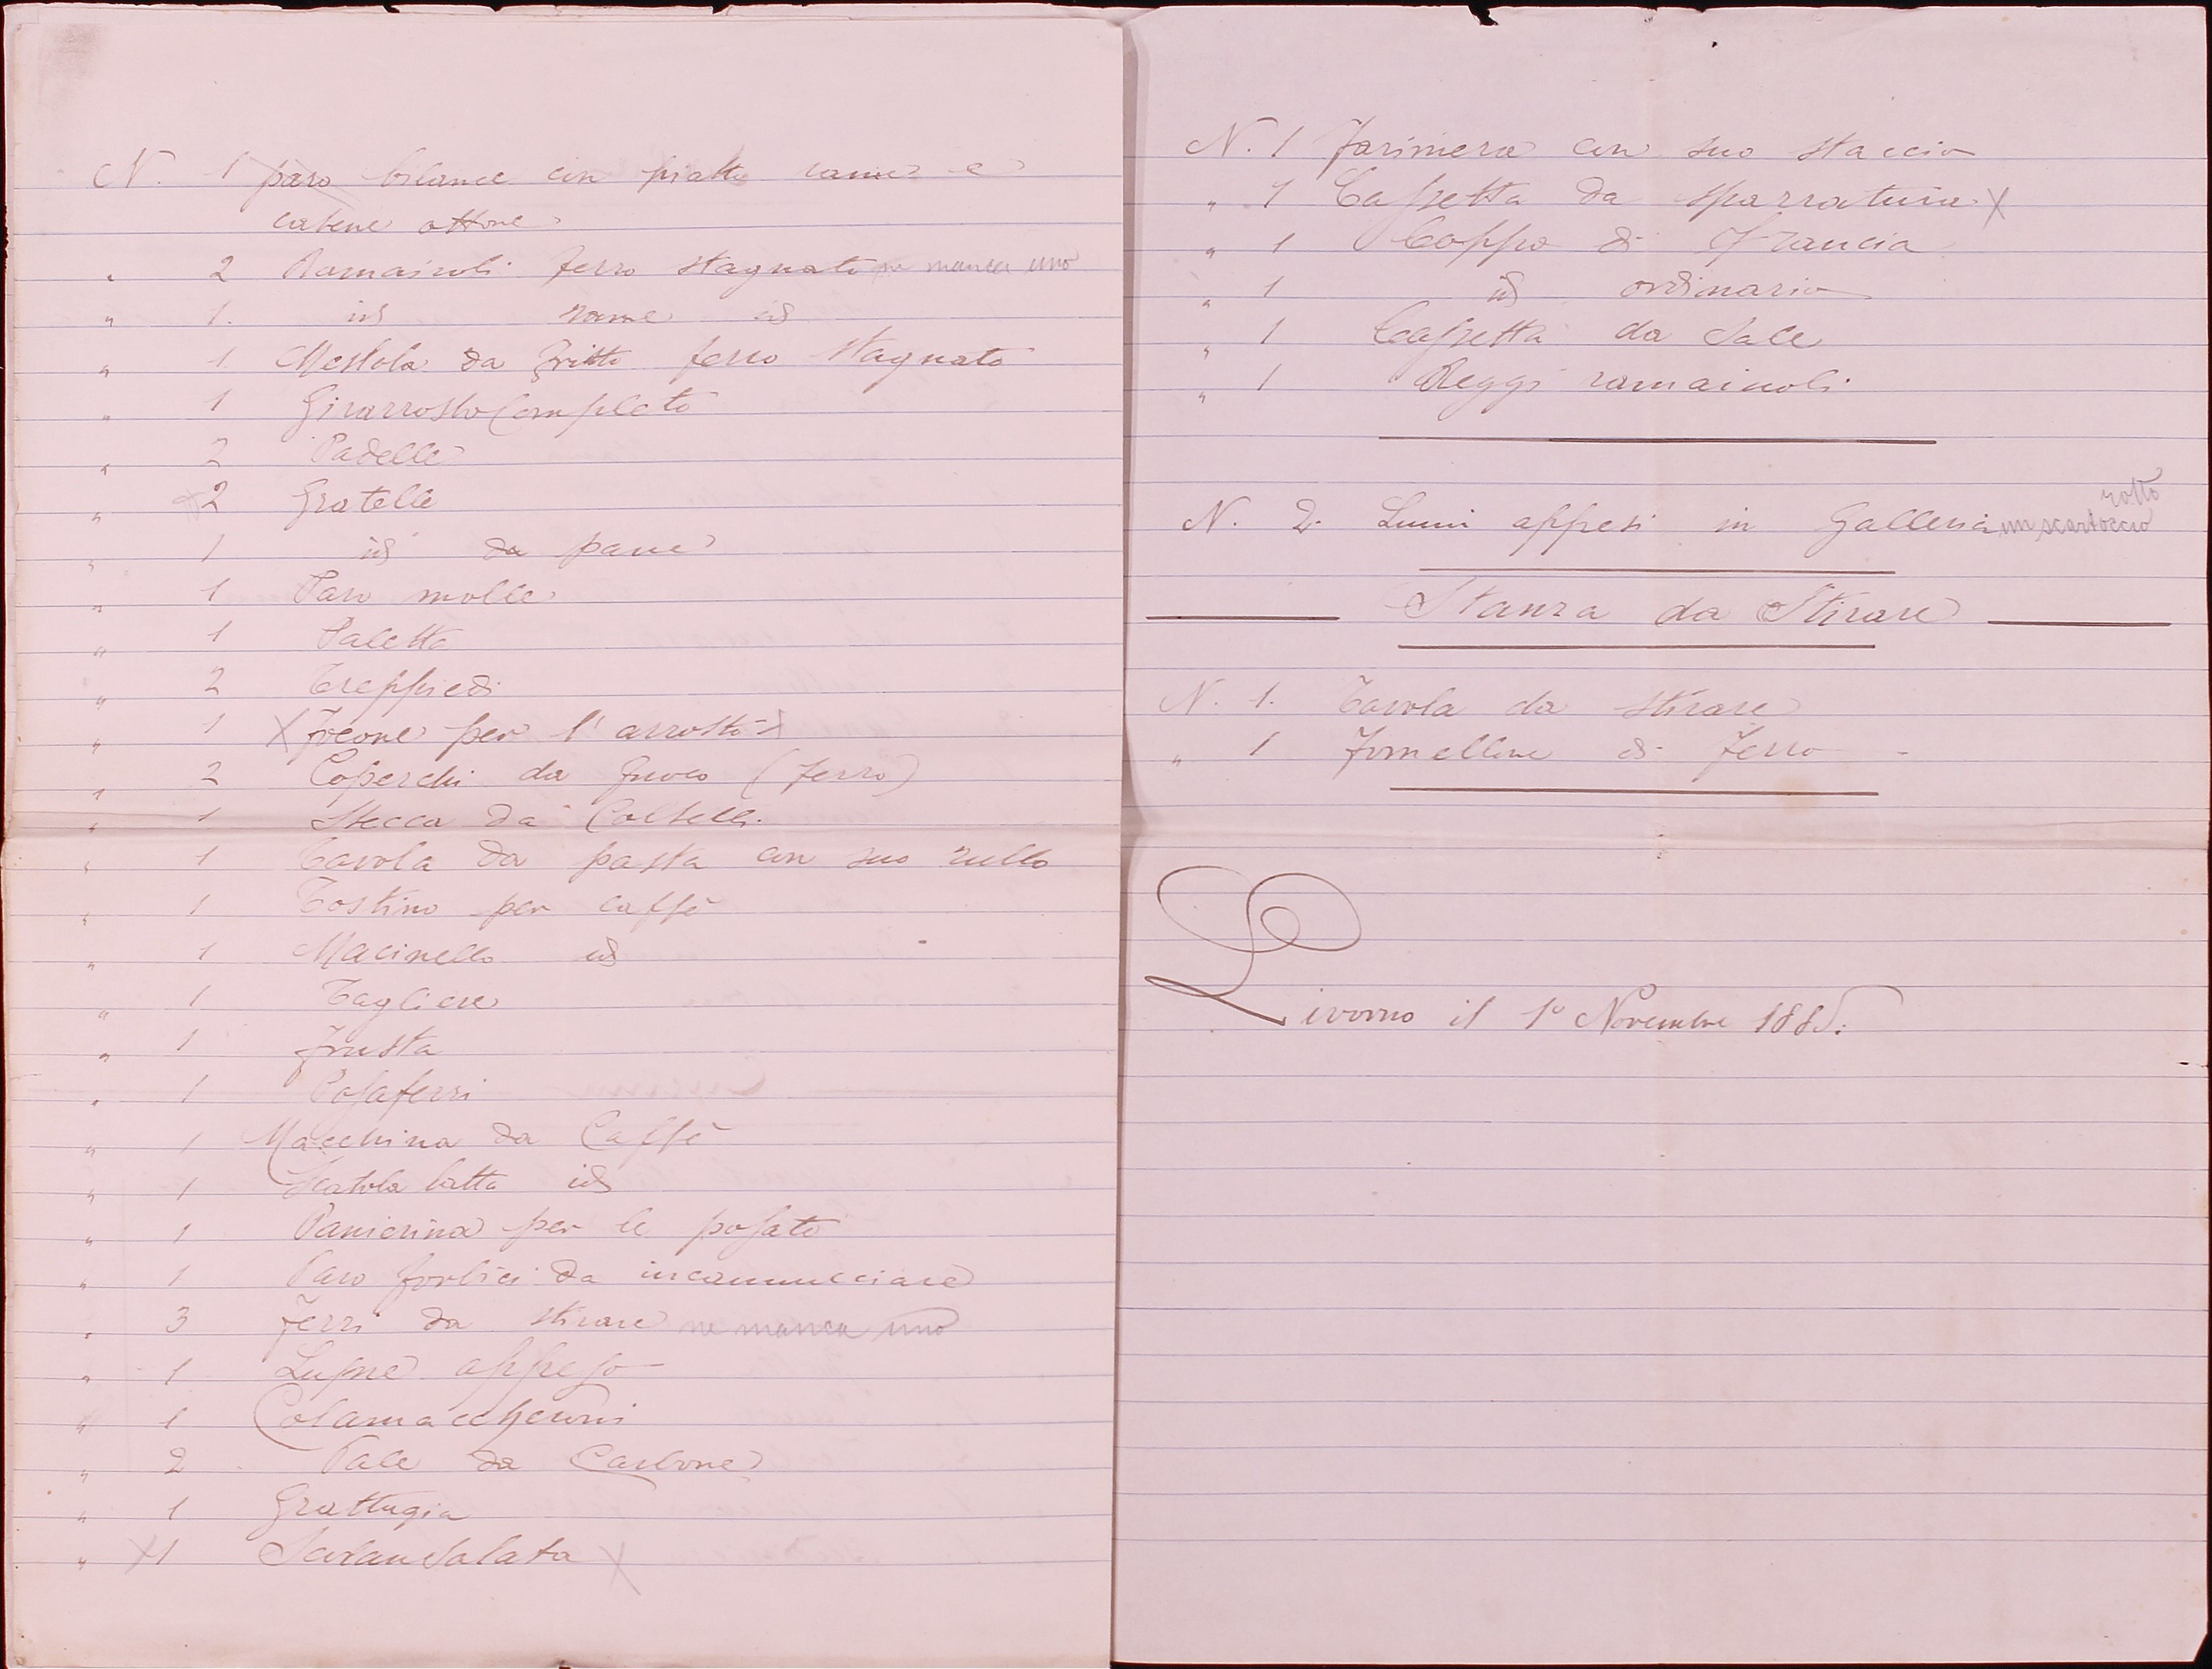 N. 1 paro bilance con piatto rame e
catene ottone
" 2 Ramaiuoli ferro stagnato ne manca uno
" 1. id rame id
" 1 Mestola da fritto ferro stagnato
" 1 Girarrosto Completo
" 2 Padelle
" 2 Gratelle
" 1 id da pane
" 1 Paro molle
" 1 Paletta
" 2 Treppiedi
" 1 X per l'arrosto X
" 2 Coperchi da fuoco (ferro)
" 1 Stecca da Coltelli.
" 1 Tavola da pasta con suo rullo
" 1 Tostino per caffè
" 1 Macinello id
" 1 Tagliere
" 1 Frusta
" 1 Posaferri
" 1 Macchina da Caffè
" 1 Scatola latta id
" 1 Panierina per le posate
" 1 Paro forbici da incannucciare
" 3 Ferri da stirare ne manca uno
" 1 Lume appeso
" 1 Colamaccheroni
" 2 Pale da Carbone
" 1 Grattugia
" X 1 Scolansalata X
N. 1 Fariniera con suo staccio
" 1 Cassetta da spazzatura X
" 1 Coppo di Francia
" 1 id ordinario
" 1 Cassetta da Sale
" 1 Reggi ramaiuoli
N. 2. Lumi appesi in Galleria rotto
un scartoccio
Stanza da Stirare
N. 1. Tavola da stirare
" 1 Fornellone di Ferro
Livorno il 1º Novembre 1885.